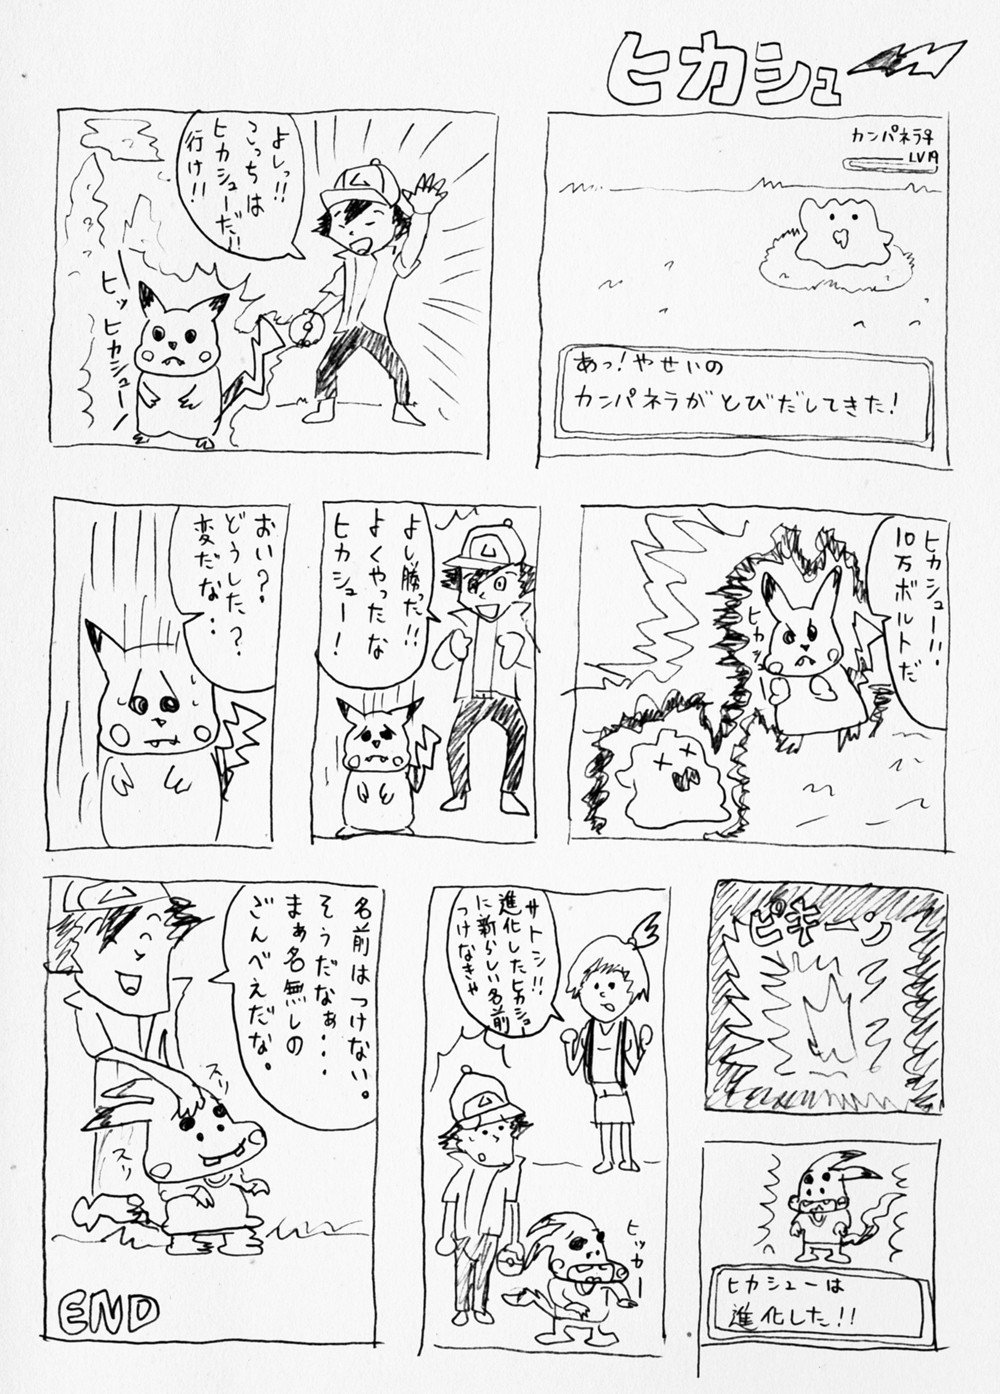 ヒカシュー
カンパネラ♀
LV19
あっ!やせいの
カンパネラがとびだしてきた!
よしっ!!
こっちは
ヒカシューだ!!
行け!!
ヒッヒカシュー!
ヒカシュー!!
10万ボルトだ
ヒカッ
よし勝った!!
よくやったな
ヒカシュー!
おい?
どうした?
変だな...
ピキーン
ヒカシューは
進化した!!
サトシ!!
進化したヒカシュー
に新らしい名前
つけなきゃ
ヒッカー
名前はつけない。
そうだなぁ...
まぁ名無しの
ごんべえだな。
スリ
スリ
END